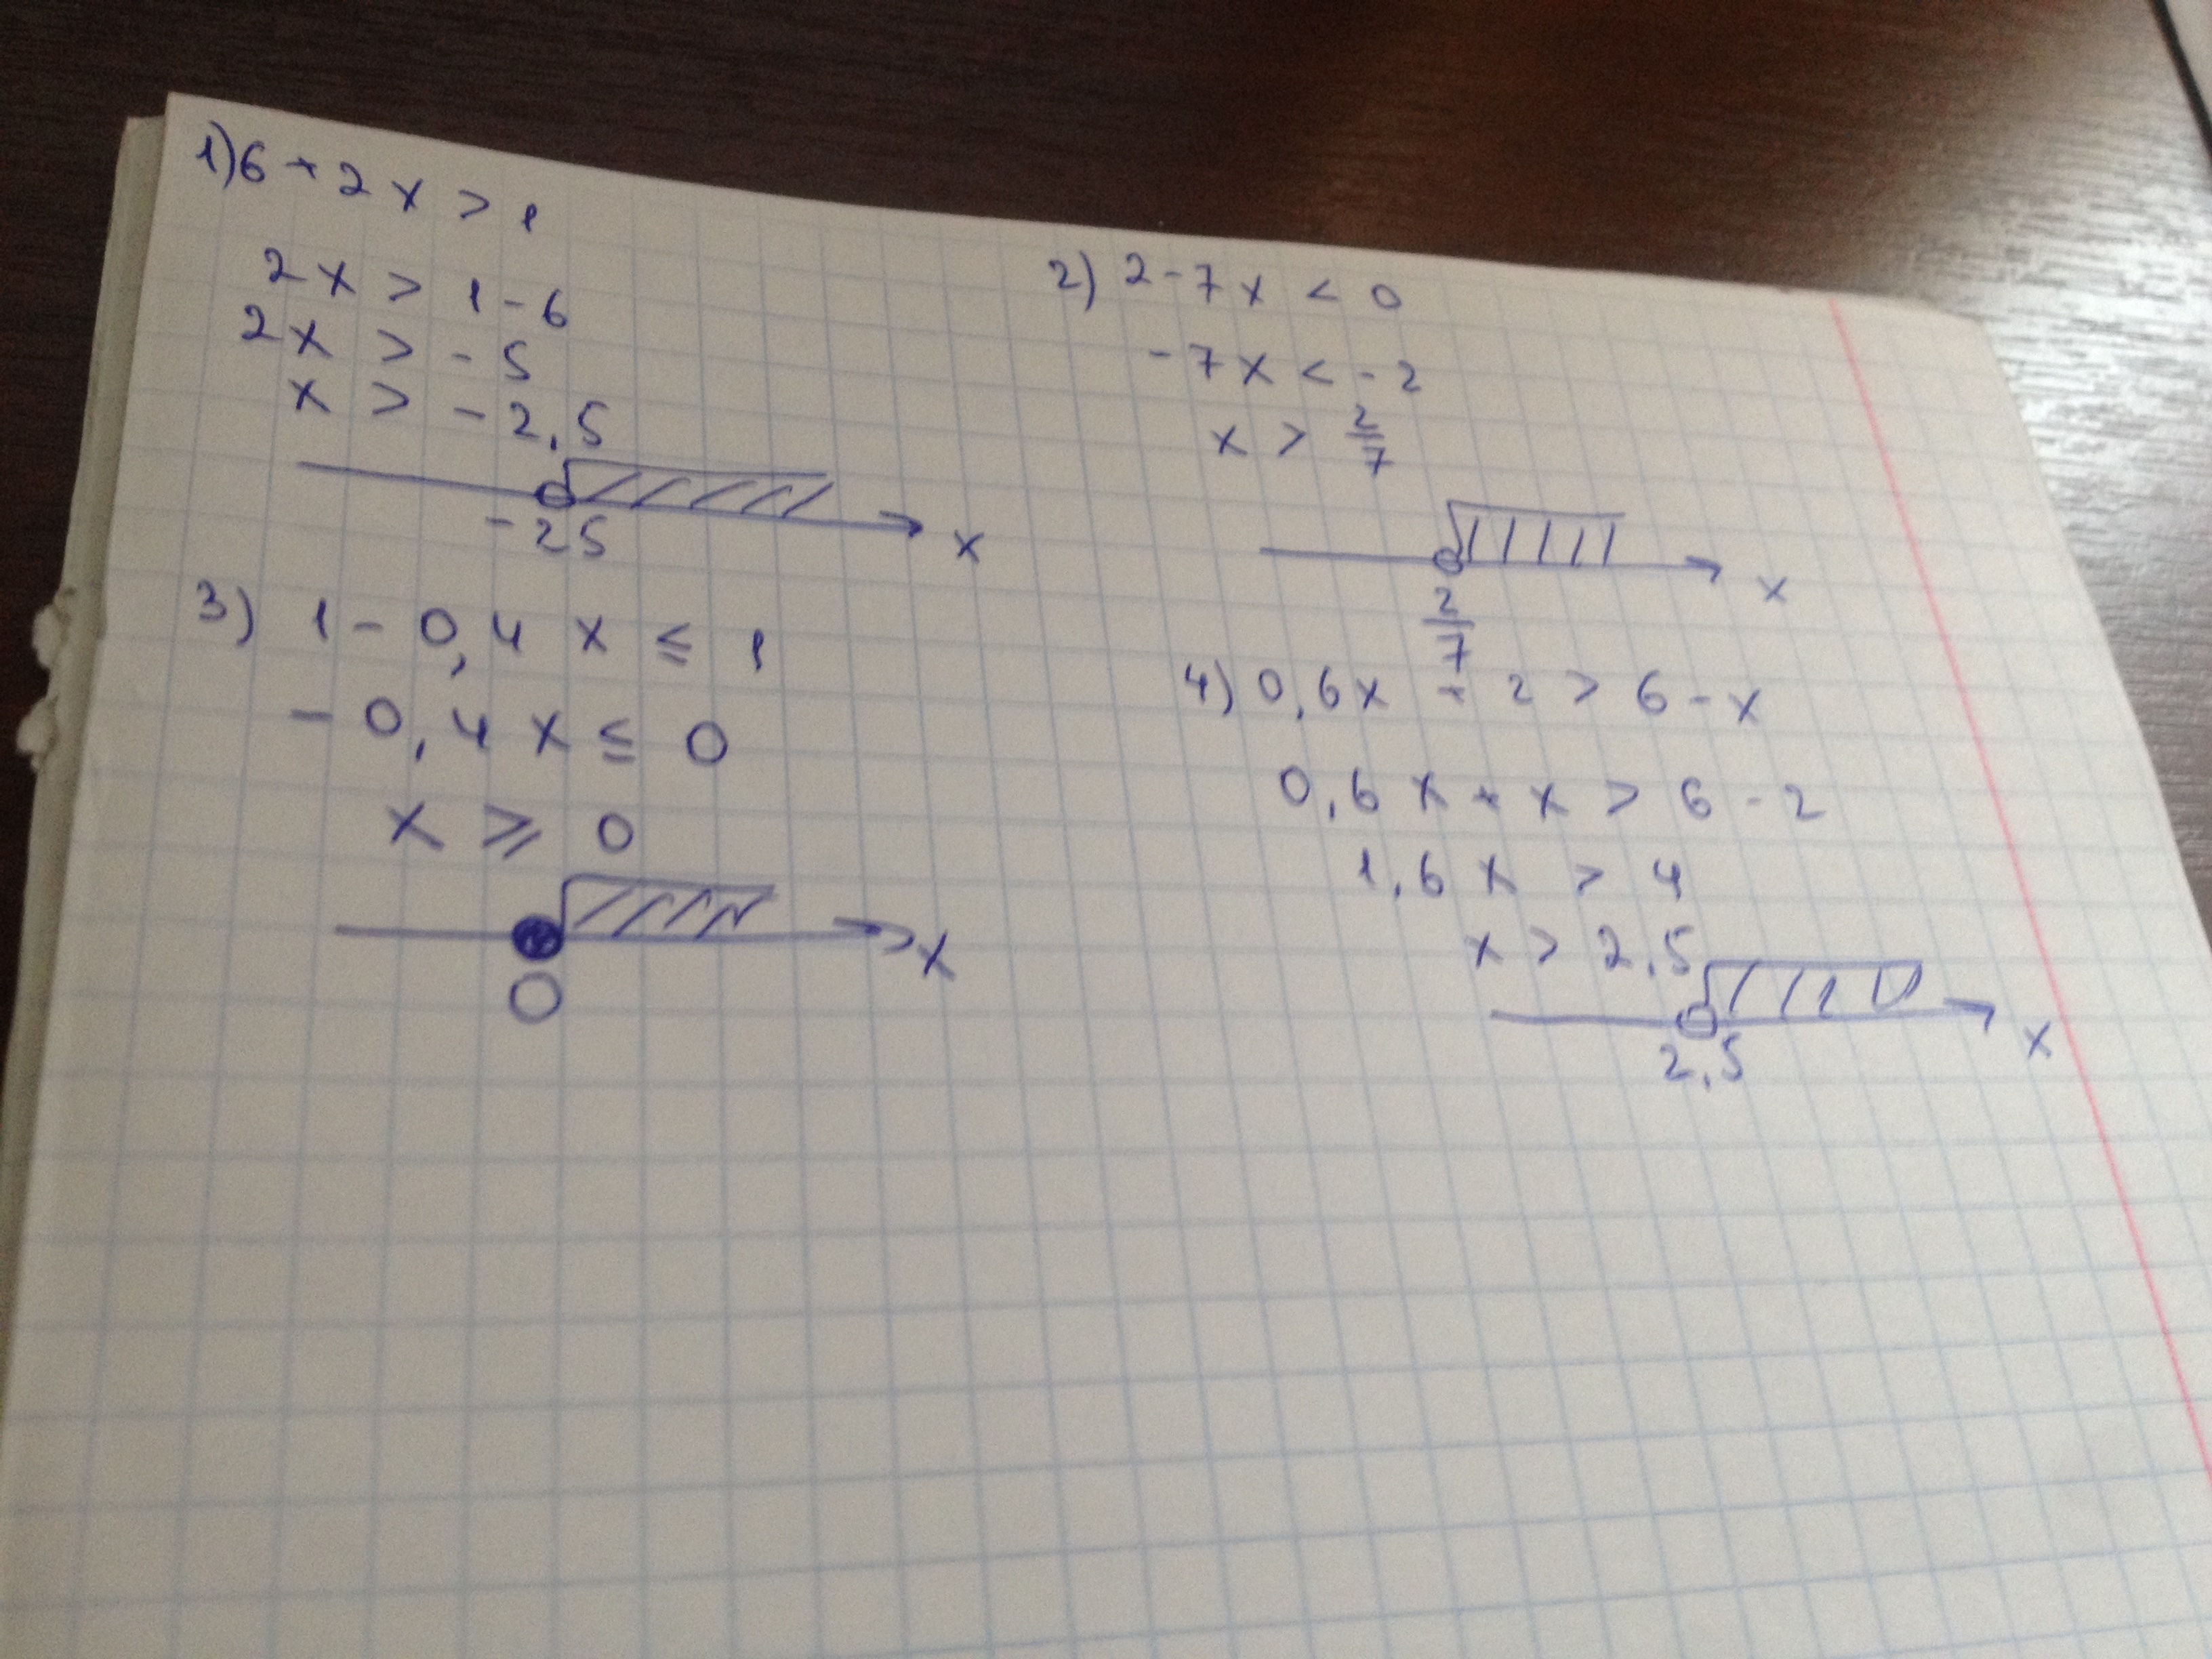 1) 6 + 2x > 1
2x > 1 - 6
2x > - 5
x > - 2,5
- 25
x
2) 2 - 7x < 0
- 7x < - 2
x > 2/7
x
2/7
3) 1 - 0,4x ≤ 1
- 0,4x ≤ 0
x ≥ 0
x
0
4) 0,6x + 2 > 6 - x
0,6x + x > 6 - 2
1,6x > 4
x > 2,5
x
2,5